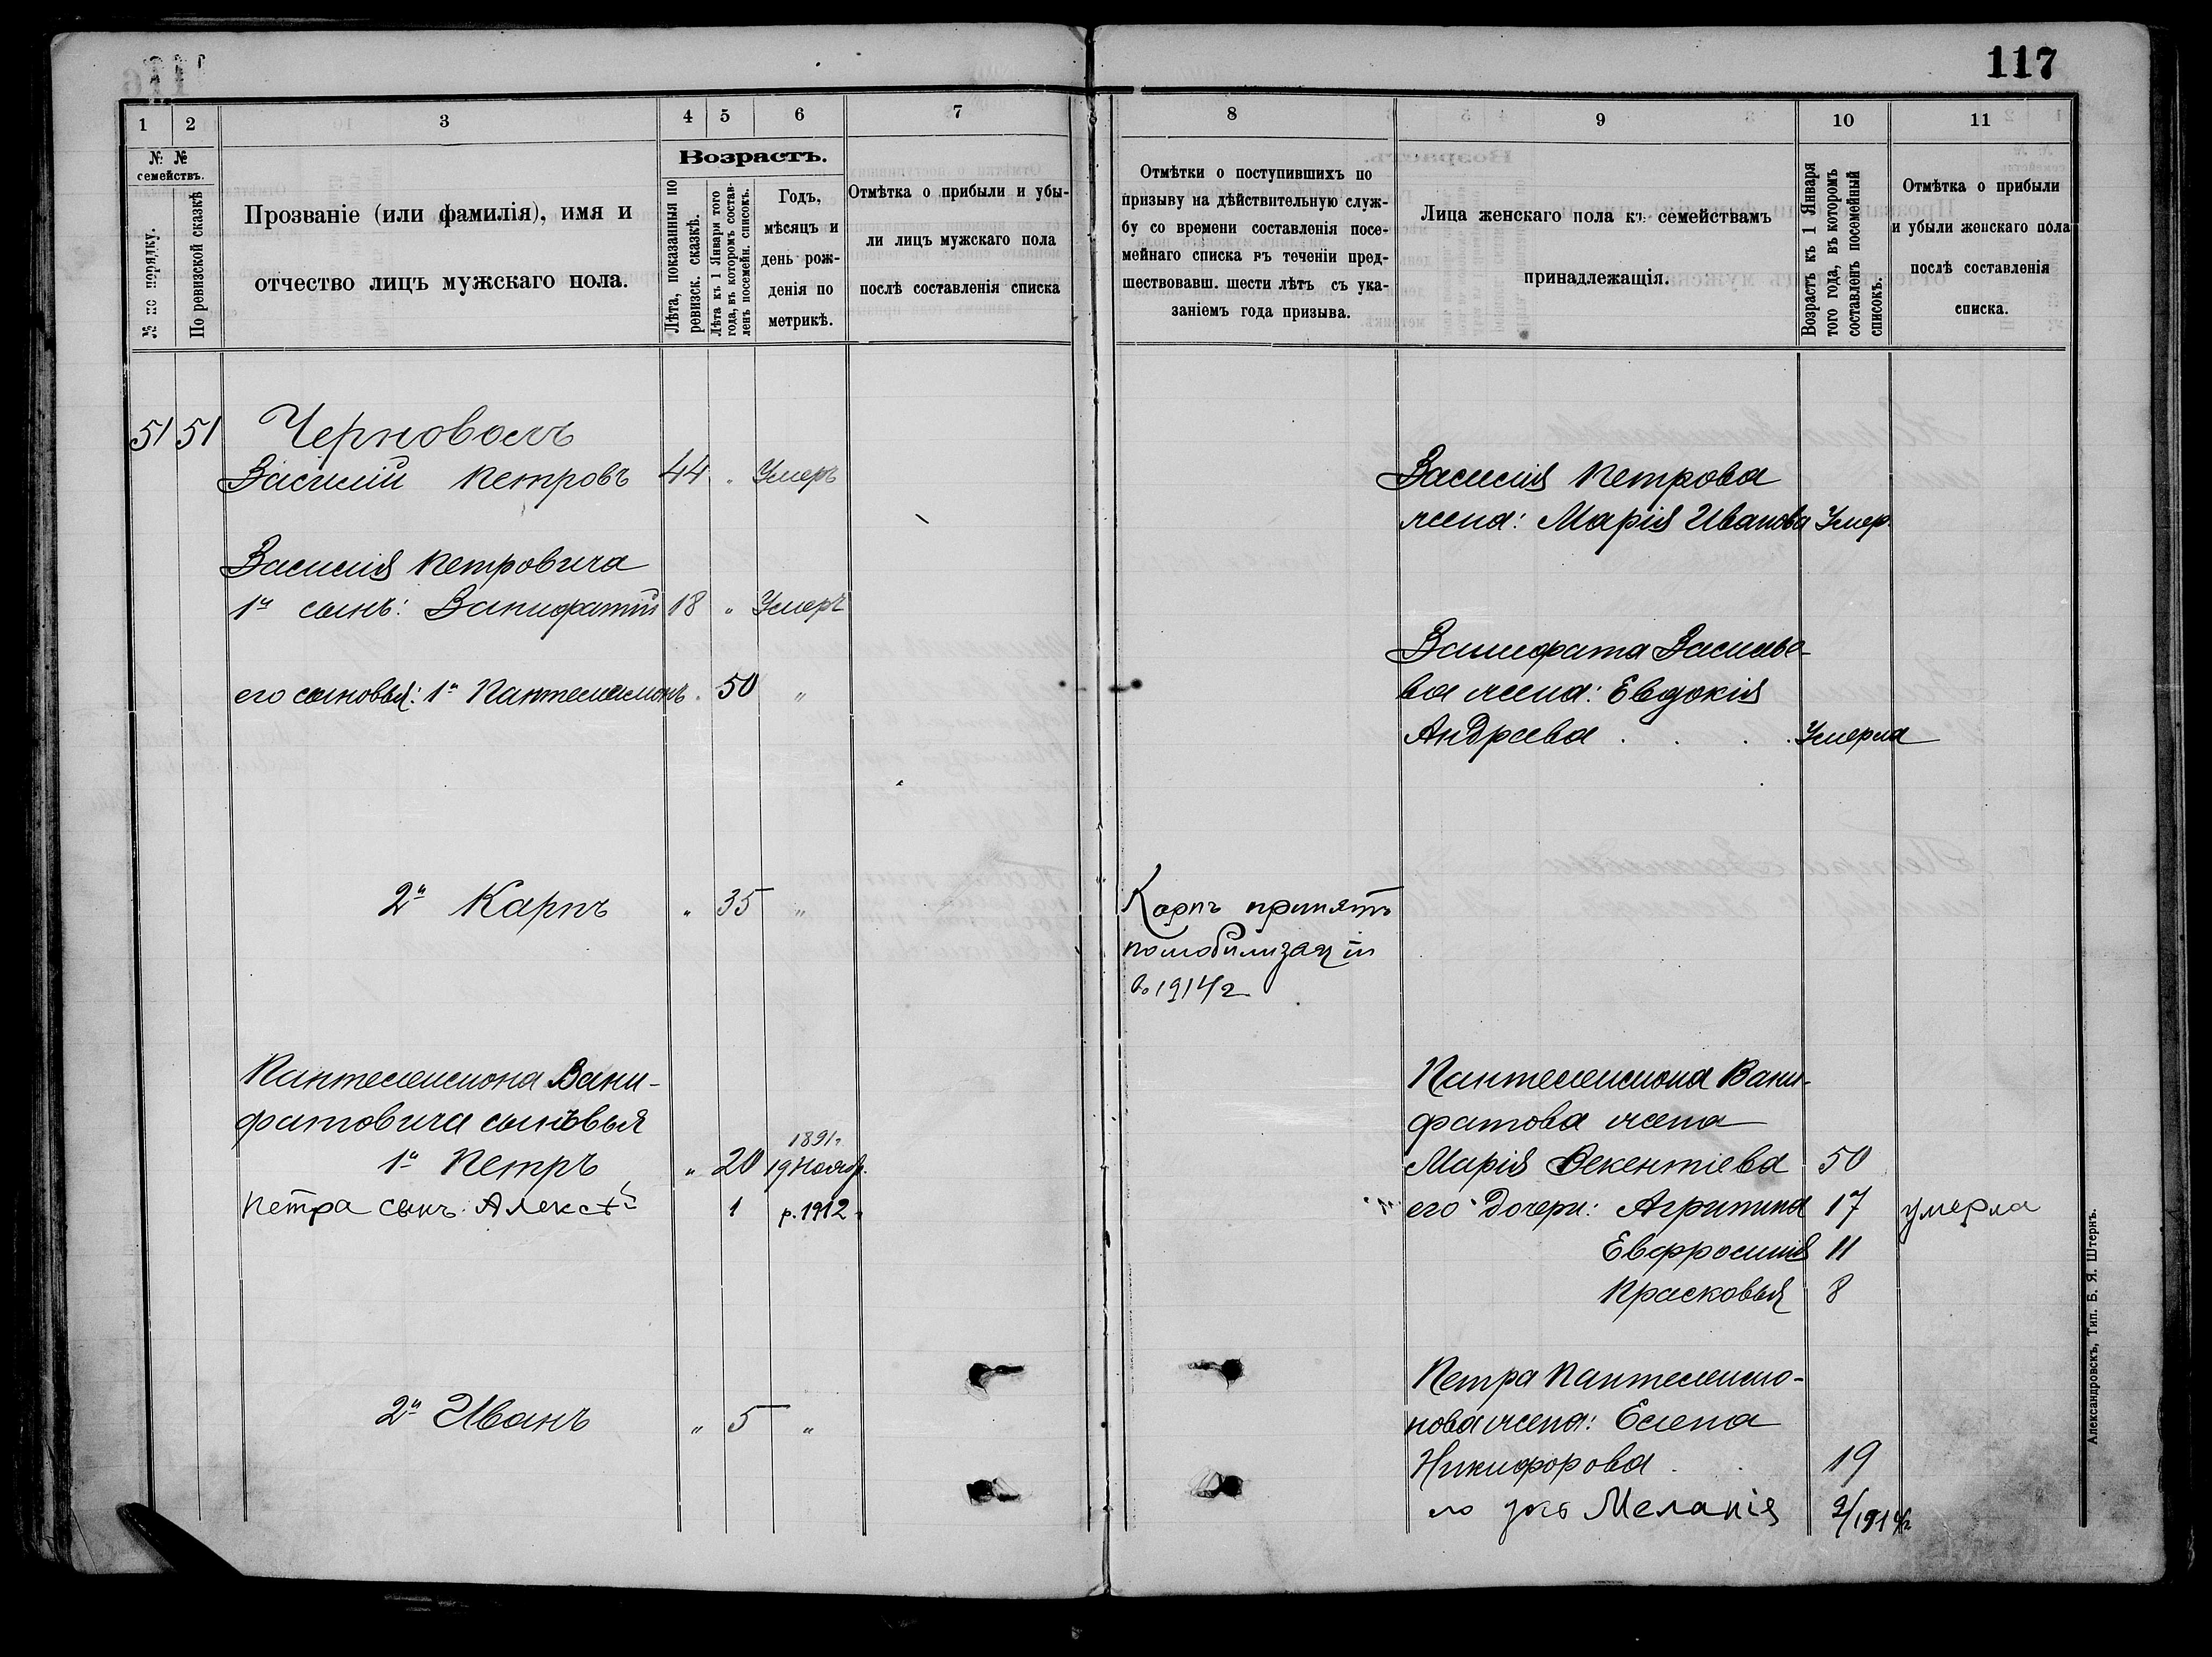 117
1 2 3 4 5 6 7
№ № семействъ.
№ по порядку.
По ревизской сказкѣ
Прозваніе (или фамилія), имя и
отчество лицъ мужскаго пола.
Возрастъ.
Лѣта, показанныя по
ревизск. сказкѣ.
Лѣта къ 1 Января того
года, въ которомъ состав-
ленъ посемейн. списокъ.
Годъ,
мѣсяцъ и
день рож-
денія по
метрикѣ.
Отмѣтка о прибыли и убы-
ли лицъ мужскаго пола
послѣ составленія списка
51 51 Черноволъ
Василій Петровъ 44 " Умеръ
Василія Петровича
1й сынъ: Ванифатій 18 " Умеръ
его сыновья: 1й Пантелеимонъ " 50 "
2й Карпъ " 35 "
Пантелеимона Вани-
фатовича сыновья
1891г
1й Петръ " 20 19 Ноябр.
Петра сынъ: Алексѣй 1 р. 1912г
2й Иванъ " 5 "
8 9 10 11
Отмѣтки о поступившихъ по
призыву на дѣйствительную служ-
бу со времени составленія посе-
мейнаго списка въ теченіи пред-
шествовавш. шести лѣтъ съ ука-
заніемъ года призыва.
Лица женскаго пола къ семействамъ
принадлежащія.
Возрастъ къ 1 Января
того года, въ которомъ
составленъ посемейный
списокъ.
Отмѣтка о прибыли
и убыли женскаго пола
послѣ составленія
списка.
Василія Петрова
жена: Марія Иванова Умер.
Ванифата Василье-
ва жена: Евдокія
Андреева . . . . Умерла
Карпъ принятъ
по мобилизаціи
в 1914 г
Пантелеимона Вани-
фатова жена
Марія Векентіева 50
его дочери: Агрипина 17 умерла
Евфросинія 11
Прасковья 8
Петра Пантелеимо-
нова жена: Елена
Никифорова . . 19
Меланія 2/1914г
Александровскъ, Тип. Б. Я. Штернъ.